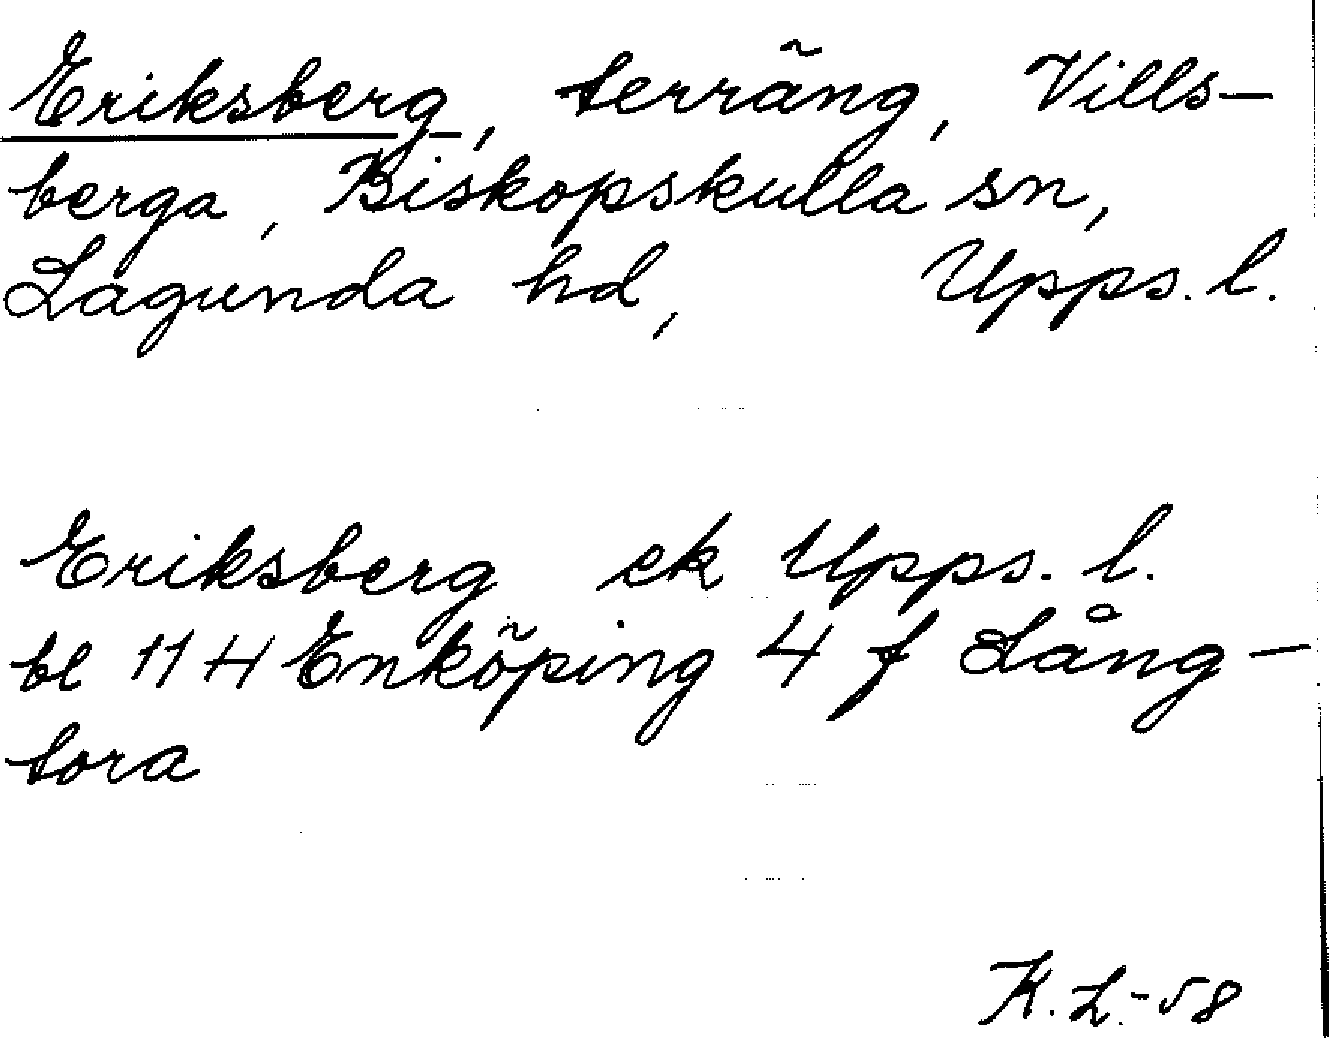 Eriksberg, terräng, Vills-
berga, Biskopskulla sn,
Lagunda hd, Upps. l.
Eriksberg ek Upps. l.
bl 11 H Enköping 4 f Lång-
tora
K.L.-58